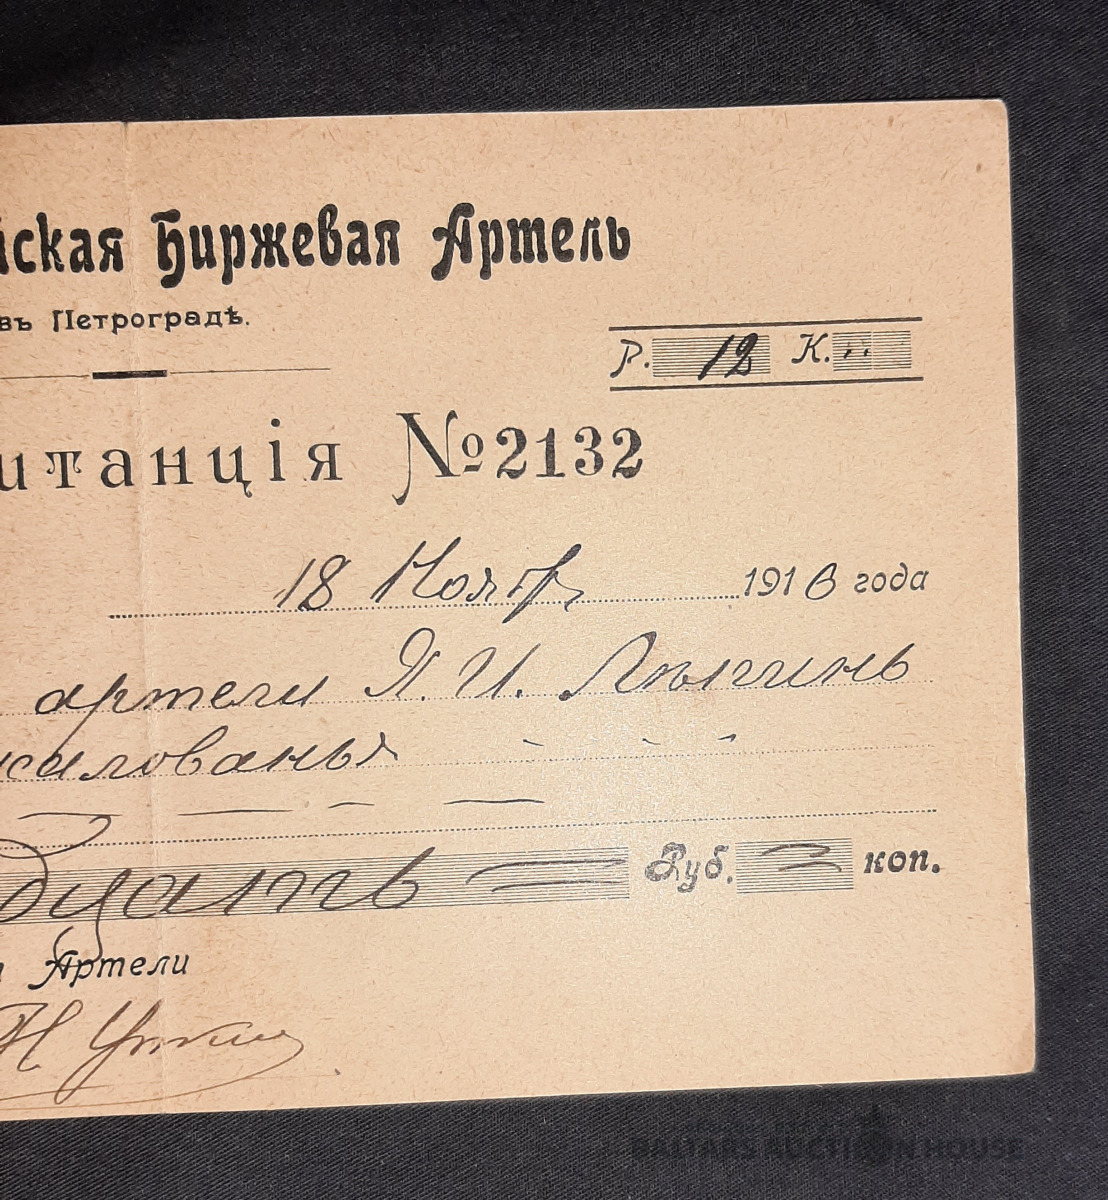 йская Биржевая Артель
въ Петроградѣ.
Р. 12 К.
итанція №2132
18 Ноябр 1916 года
артели Я. И.
жалованья
дцать Руб. коп.
Артели
BALTARS AUCTION HOUSE